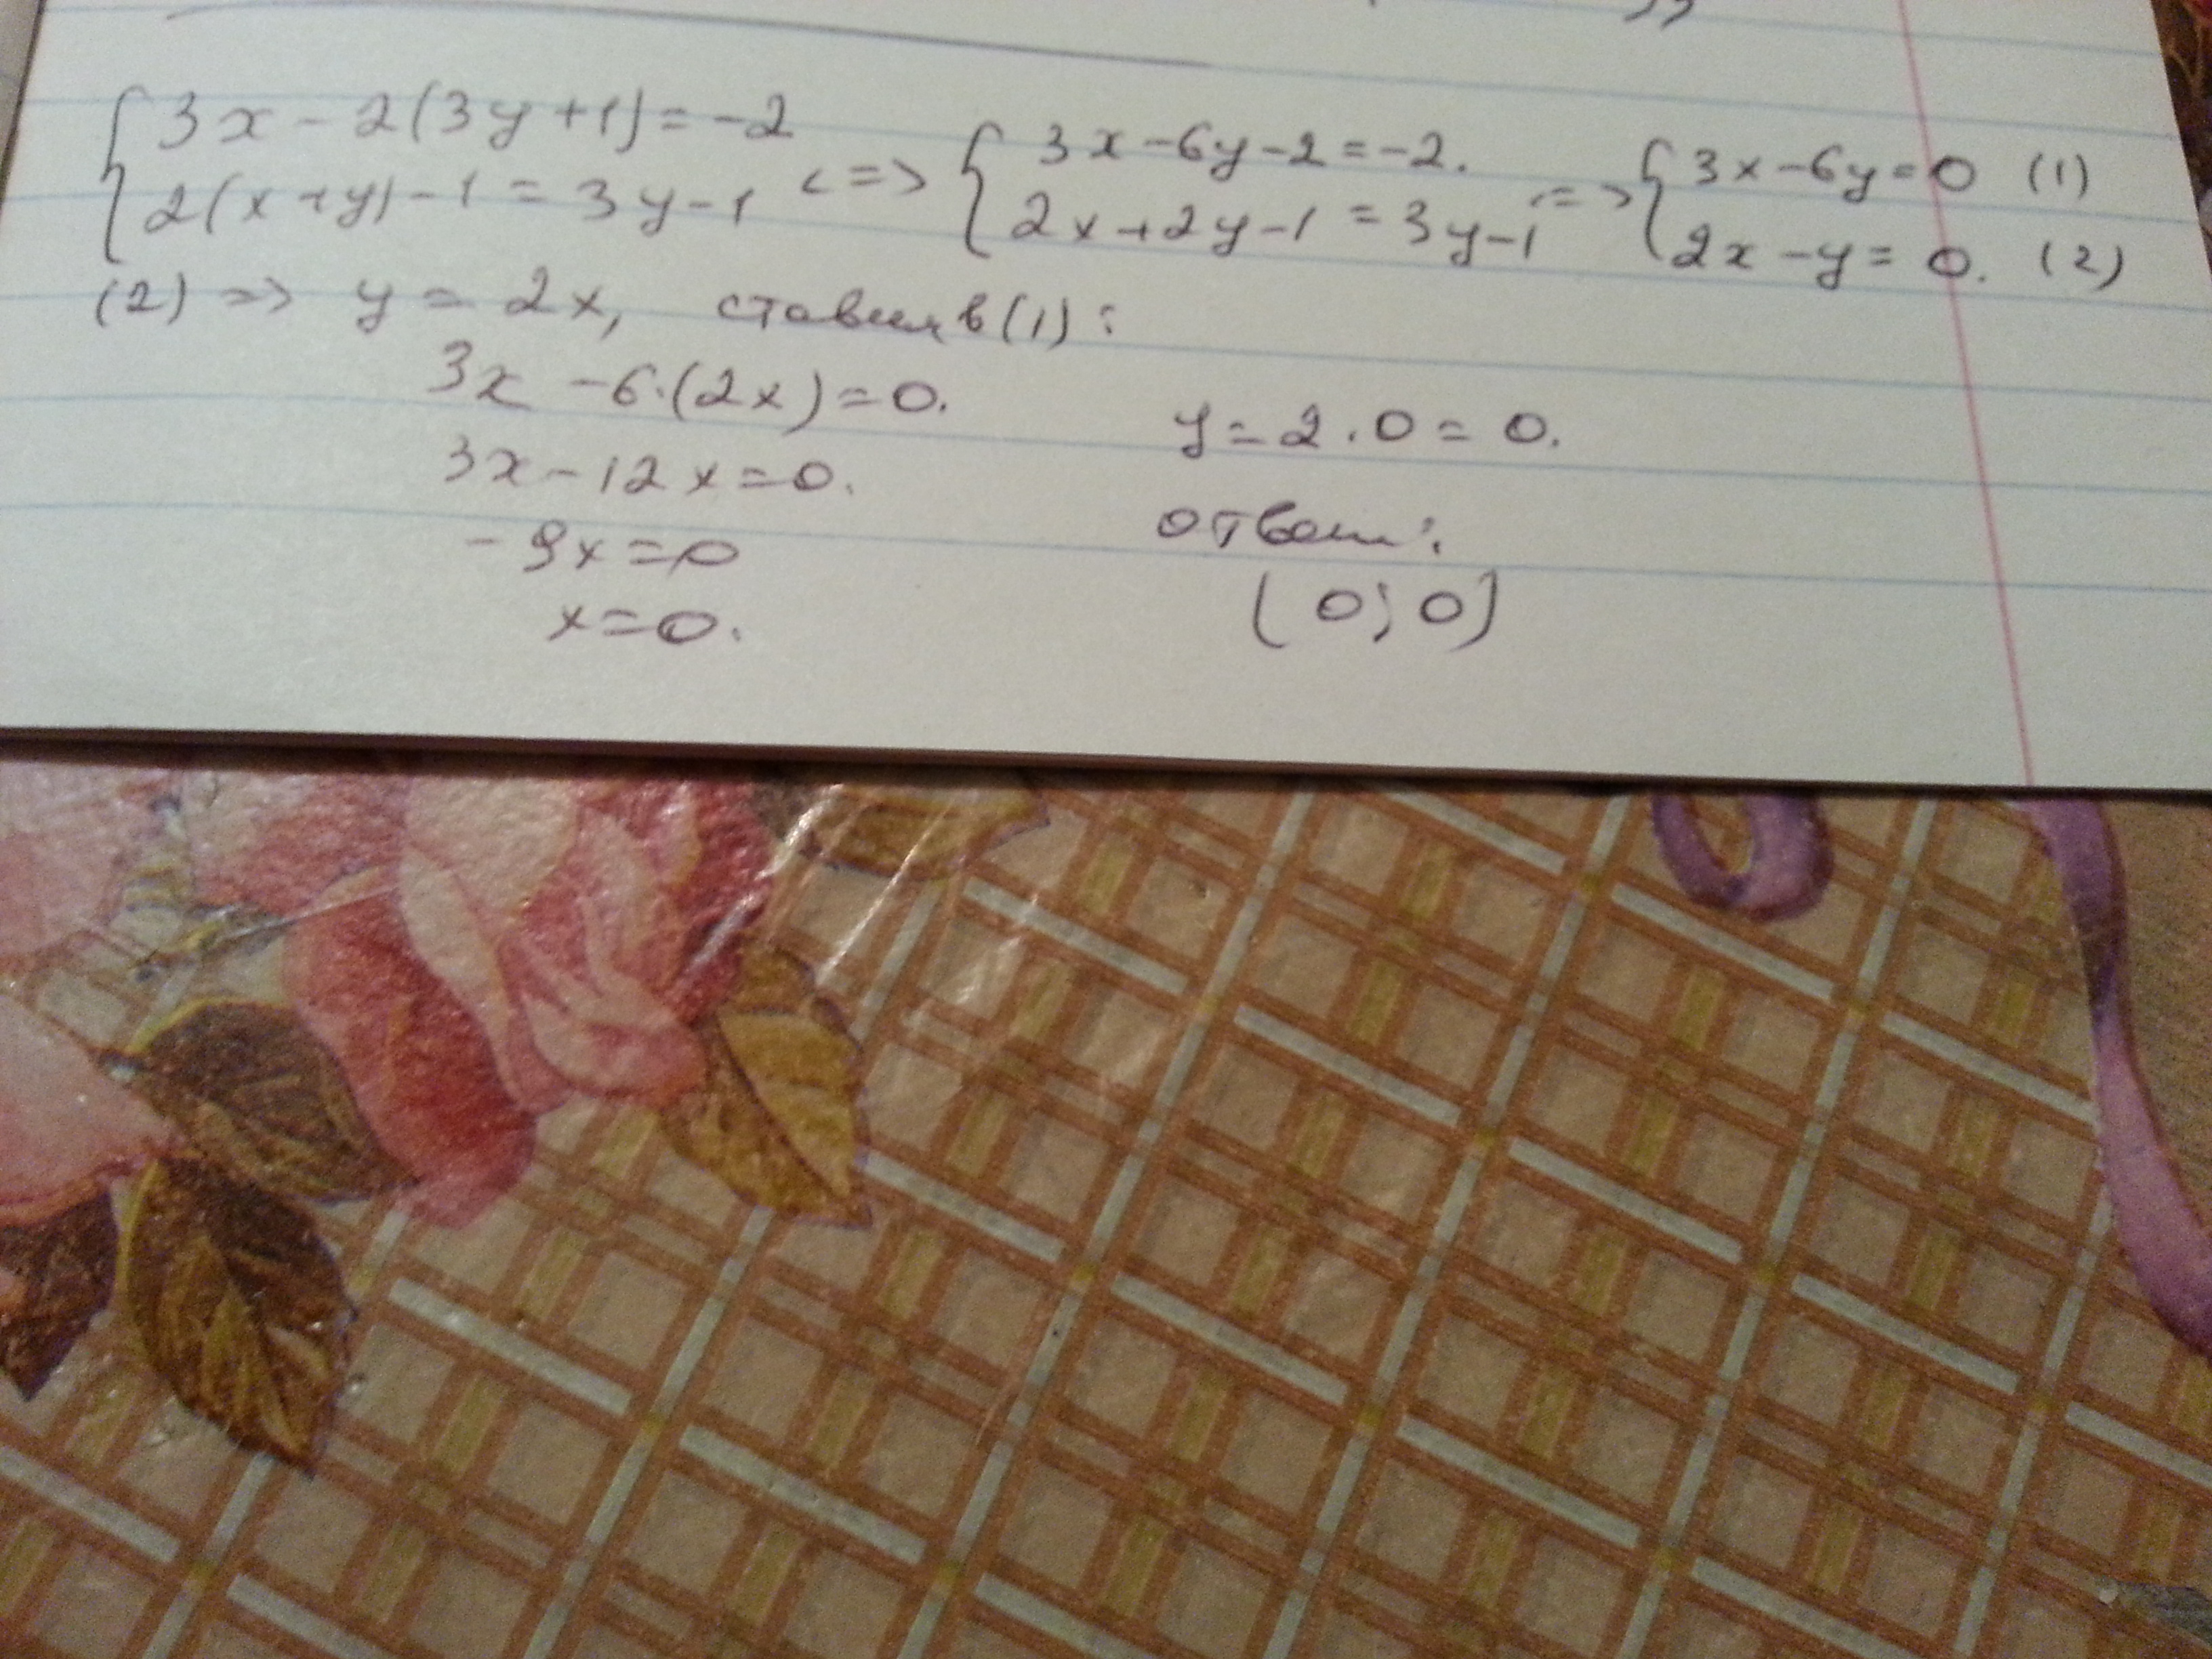 { 3x - 2(3y+1) = -2 <=> { 3x - 6y - 2 = -2. <=> { 3x - 6y = 0 (1)
2(x+y) - 1 = 3y - 1 2x + 2y - 1 = 3y - 1 2x - y = 0. (2)
(2) => y = 2x, ставим в (1):
3x - 6·(2x) = 0.
3x - 12x = 0.
-9x = 0
x = 0.
y = 2·0 = 0.
ответ:
(0; 0)